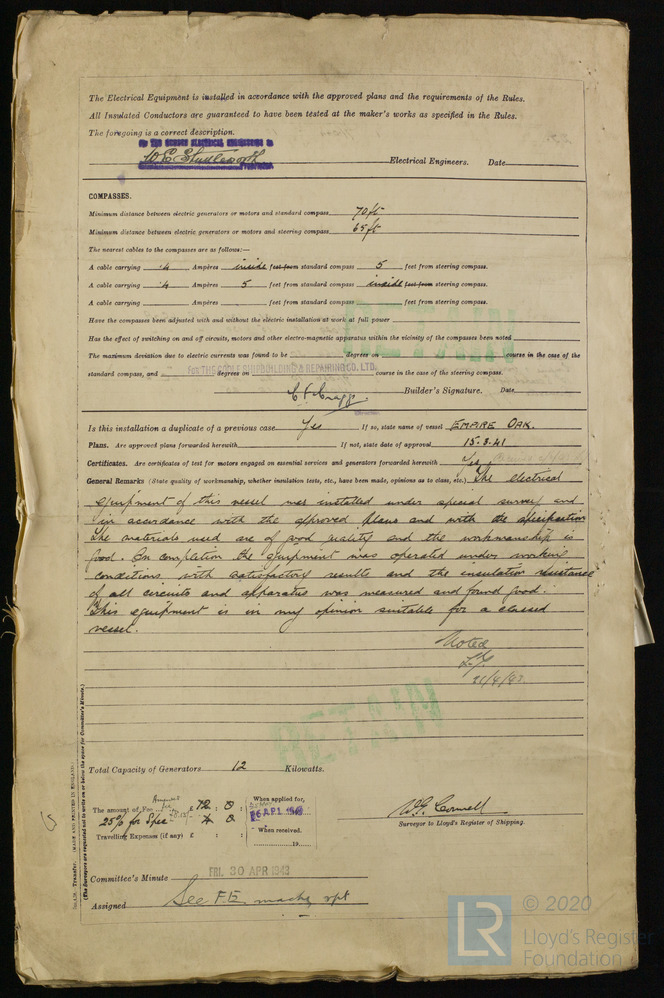 The Electrical Equipment is installed in accordance with the approved plans and the requirements of the Rules.
All Insulated Conductors are guaranteed to have been tested at the maker's works as specified in the Rules.
The foregoing is a correct description.
Electrical Engineers. Date
COMPASSES.
Minimum distance between electric generators or motors and standard compass 70 ft
Minimum distance between electric generators or motors and steering compass 65 ft
The nearest cables to the compasses are as follows:—
A cable carrying ·4 Ampères inside feet from standard compass 5 feet from steering compass.
A cable carrying ·4 Ampères 5 feet from standard compass inside feet from steering compass.
A cable carrying Ampères feet from standard compass feet from steering compass.
Have the compasses been adjusted with and without the electric installation at work at full power
Has the effect of switching on and off circuits, motors and other electro-magnetic apparatus within the vicinity of the compasses been noted
The maximum deviation due to electric currents was found to be degrees on course in the case of the
standard compass, and degrees on course in the case of the steering compass.
For THE GOOLE SHIPBUILDING & REPAIRING CO. LTD.
Builder's Signature. Date
Is this installation a duplicate of a previous case Yes If so, state name of vessel EMPIRE OAK.
Plans. Are approved plans forwarded herewith If not, state date of approval 15.3.41
Certificates. Are certificates of test for motors engaged on essential services and generators forwarded herewith Yes
General Remarks (State quality of workmanship, whether insulation tests, etc., have been made, opinions as to class, etc.) The electrical
equipment of this vessel was installed under special survey and
in accordance with the approved plans and with the specification
The materials used are of good quality and the workmanship is
good. On completion the equipment was operated under working
conditions with satisfactory results and the insulation resistance
of all circuits and apparatus was measured and found good.
This equipment is in my opinion suitable for a classed
vessel.
Noted
21/4/43
RETAIN
Total Capacity of Generators 12 Kilowatts.
The amount of Fee £ 12 : 0 : When applied for,
25% for Spec
APR 1943
Travelling Expenses (if any) £ : : When received.
19
Surveyor to Lloyd's Register of Shipping.
Committee's Minute FRI. 30 APR 1943
Assigned See F.E. machy rpt
Transfer. (MADE AND PRINTED IN ENGLAND)
(The Surveyors are requested not to write on or below the space for Committee's Minute.)
LR
© 2020
Lloyd's Register
Foundation